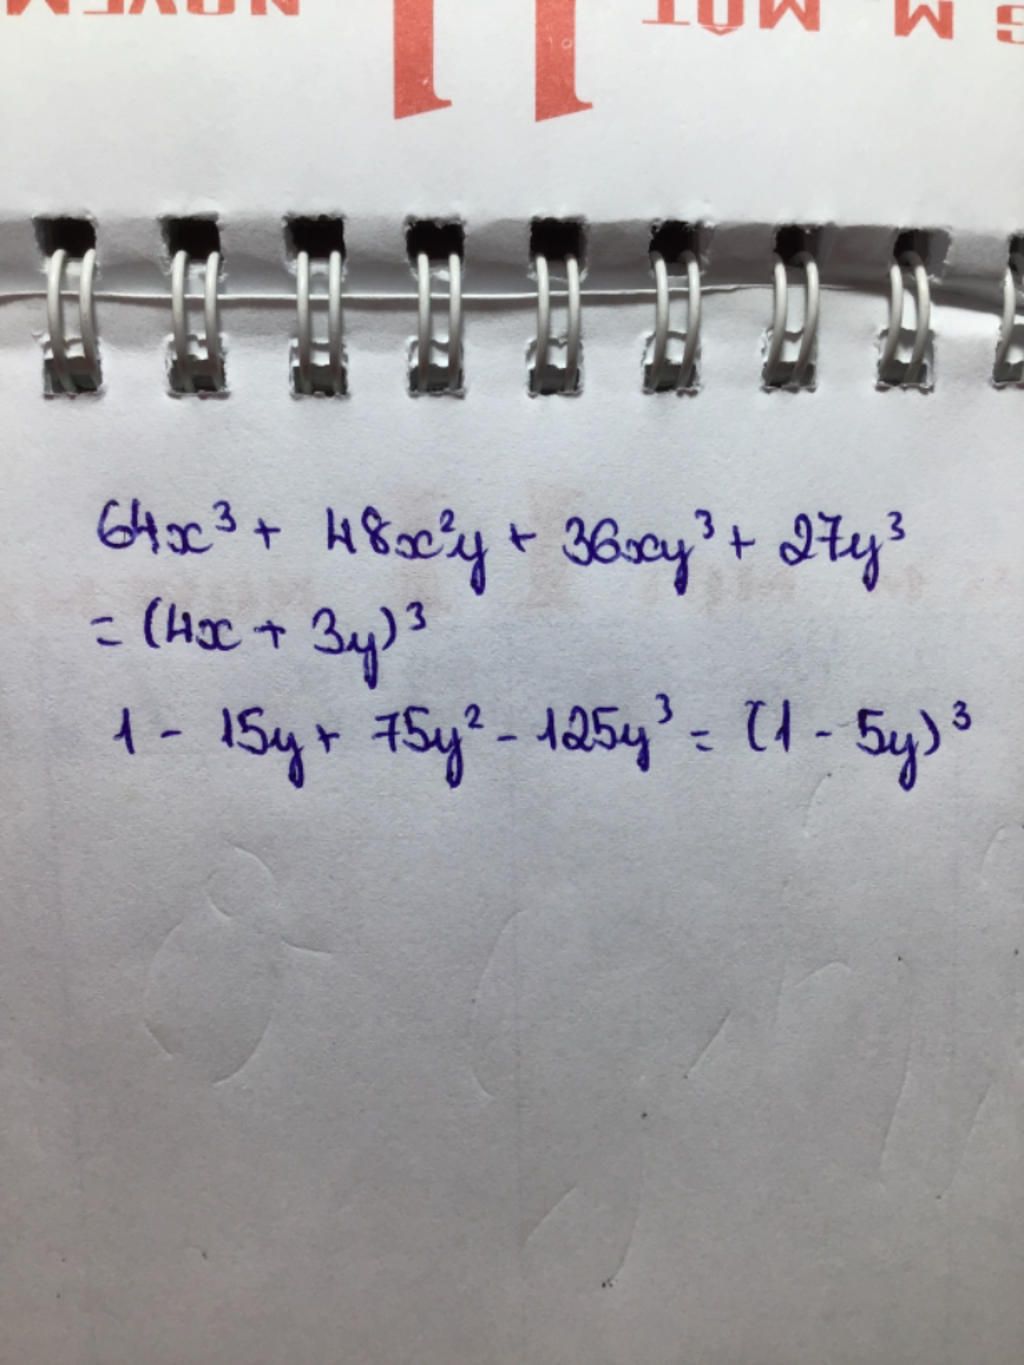 64x³ + 48x²y + 36xy³ + 27y³
= (4x + 3y)³
1 - 15y + 75y² - 125y³ = (1 - 5y)³